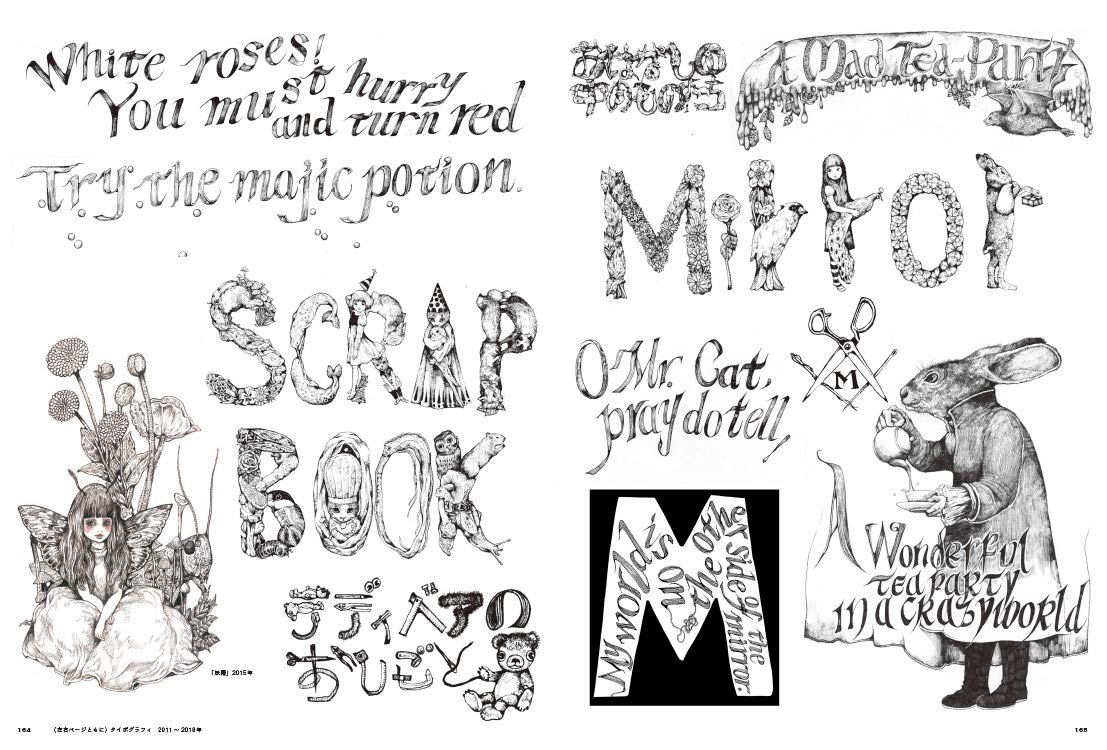 White roses!
You must hurry
and turn red
Try the majic potion.
SCRAP
BOOK
テディベアの
おしごと
「妖精」2015年
164 (左右ページともに)タイポグラフィ 2011〜2018年
A Mad Tea-Party
Mirror
O Mr. Cat,
pray do tell,
M
My world is on the other side of the mirror.
A Wonderful
tea party
in a crazy world
165